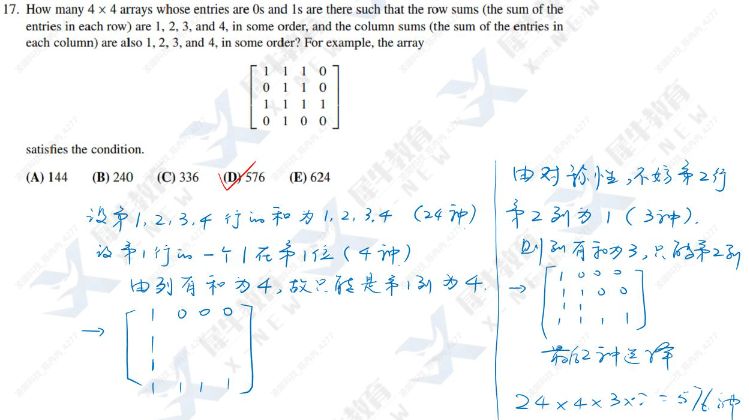 17. How many 4 × 4 arrays whose entries are 0s and 1s are there such that the row sums (the sum of the
entries in each row) are 1, 2, 3, and 4, in some order, and the column sums (the sum of the entries in
each column) are also 1, 2, 3, and 4, in some order? For example, the array
1 1 1 0
0 1 1 0
1 1 1 1
0 1 0 0
satisfies the condition.
(A) 144 (B) 240 (C) 336 (D) 576 (E) 624
设第1,2,3,4行的和为1,2,3,4 (24种)
设第1行的一个1在第1位(4种)
由列有和为4,故只能是第1列为4.
→
1 0 0 0
1
1
1 1 1 1
由对称性,不妨第2行
第2列为1(3种).
则列有和为3,只能第2列
→
1 0 0 0
1 1 0 0
1 1
1 1 1 1
最后2种选择
24×4×3×2=576种
犀牛教育
X-NEW